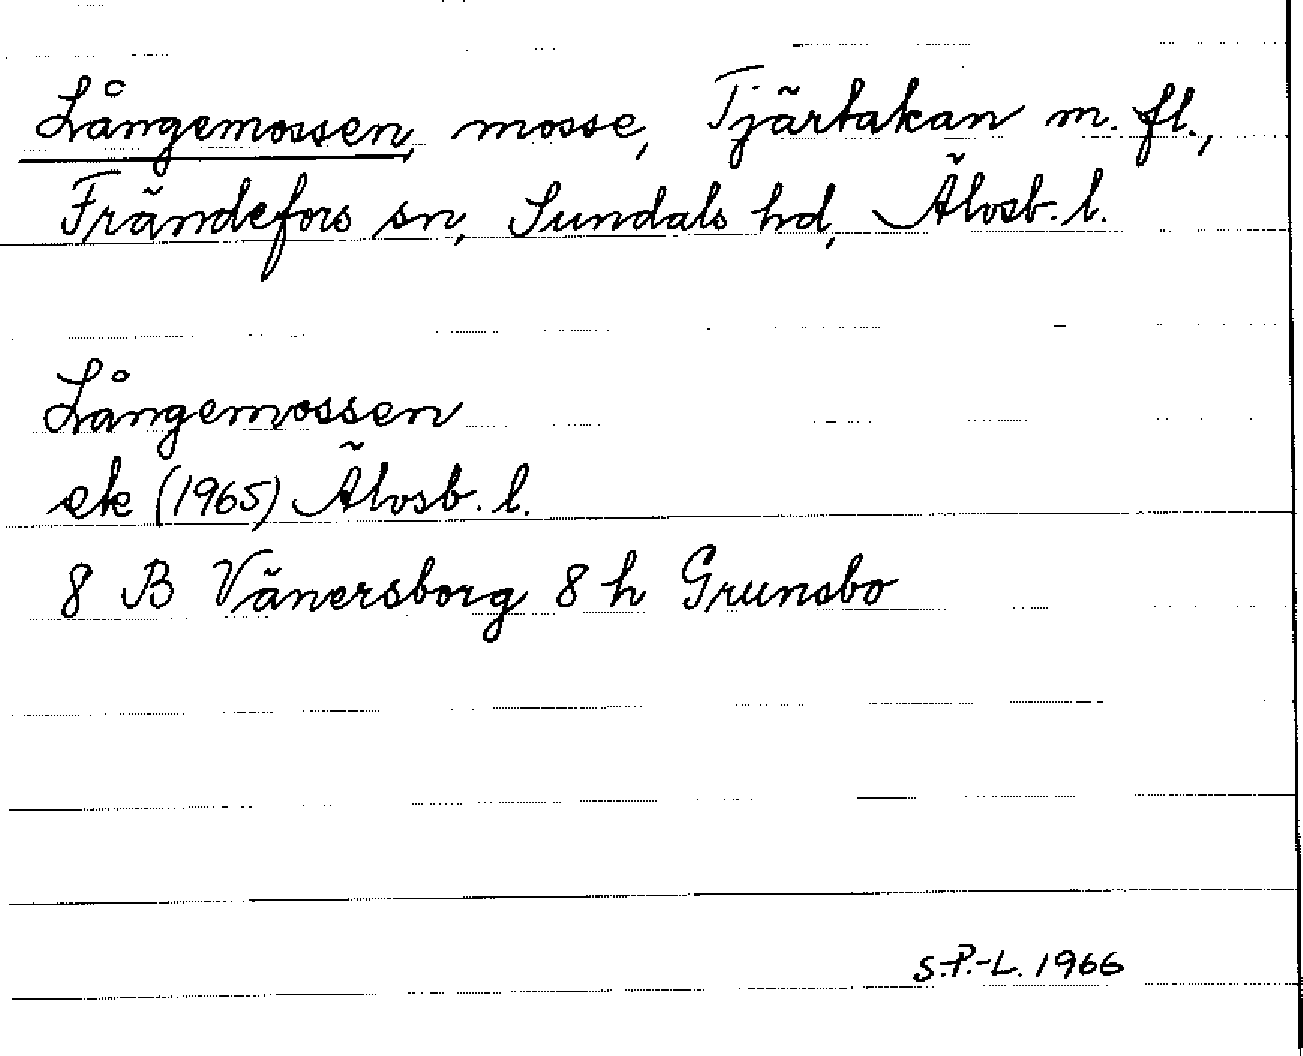 Långemossen, mosse, Tjärtakan m. fl.,
Frändefors sn, Sundals hd, Älvsb. l.
Långemossen
ek (1965) Älvsb. l.
8 B Vänersborg 8 h Grunsbo
S.P.-L. 1966